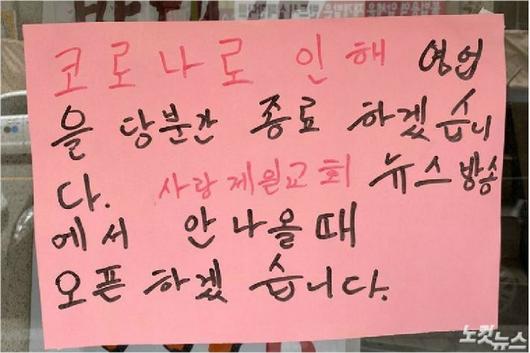 코로나로 인해 영업
을 당분간 종료 하겠습니
다. 사랑제일교회 뉴스방송
에서 안나올때
오픈 하겠 습니다.
노컷뉴스